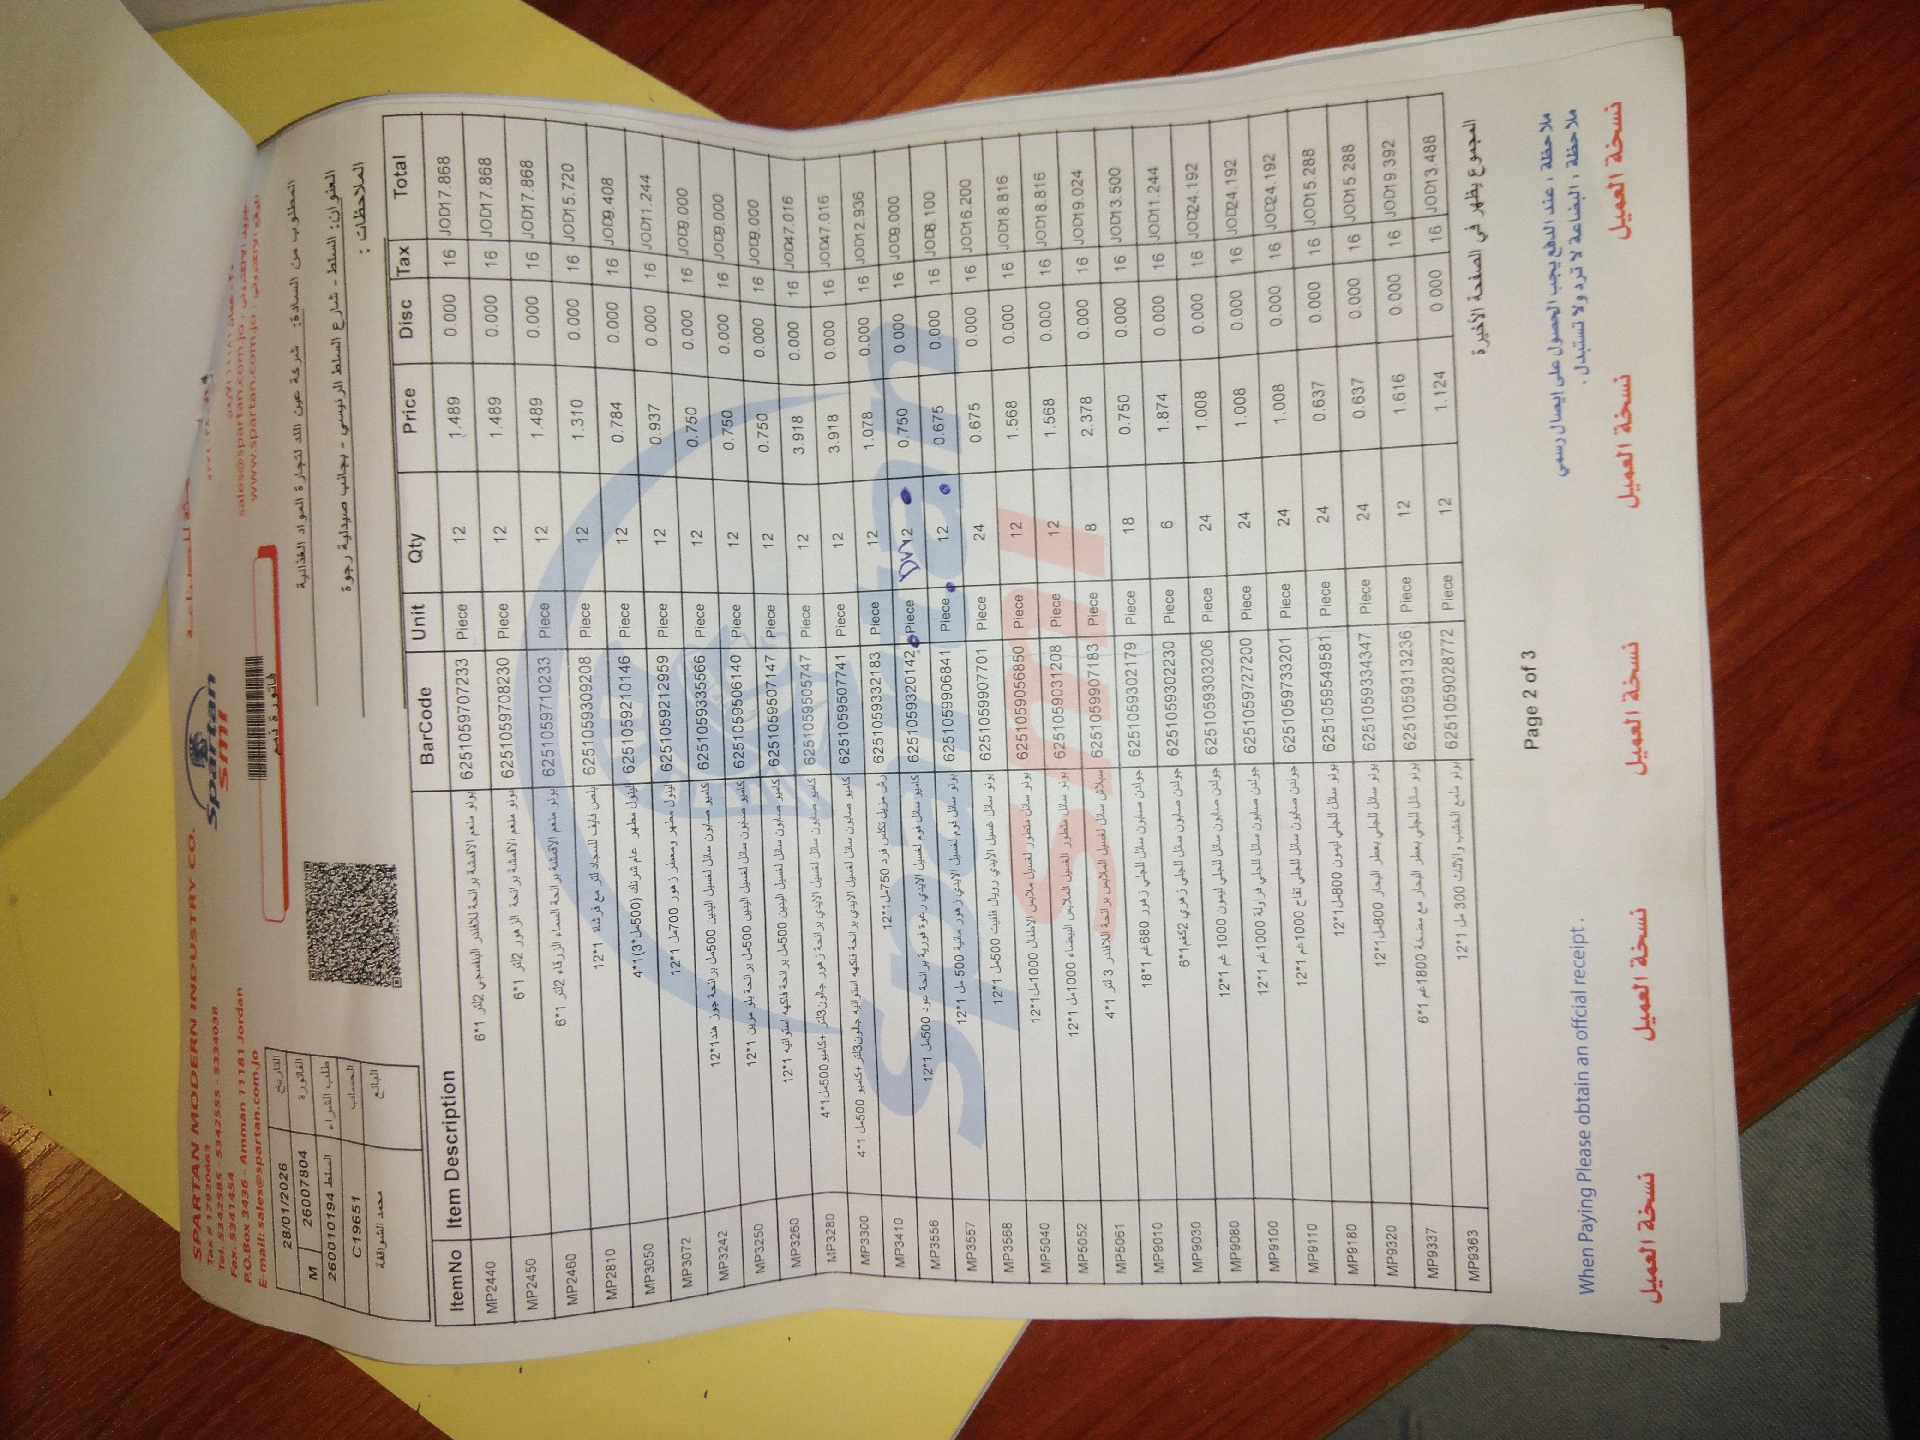 SPARTAN MODERN INDUSTRY CO.
Tax # 17920663
Tel. 5342585 - 5342555 - 5334038
Fax. 5341454
P.O.Box 3436 - Amman 11181 Jordan
E-mail: sales@spartan.com.jo
Spartan
SMI
sales@spartan.com.jo
www.spartan.com.jo
فاتورة ذمم
28/01/2026 التاريخ
M 26007804 الفاتورة
السلط 26001019 طلب الشراء
C19651 الحساب
محمد الشوافقة البائع
المطلوب من السادة: شركة عين الله لتجارة المواد الغذائية
العنوان: السلط - شارع السلط الرئيسي - بجانب صيدلية رجوة
الملاحظات :
ItemNo Item Description BarCode Unit Qty Price Disc Tax Total
MP2440 بونو منعم الاقمشة برائحة للافندر البنفسجي 2لتر 1*6 6251059707233 Piece 12 1.489 0.000 16 JOD17.868
MP2450 بونو منعم الاقمشة برائحة الزهور 2لتر 1*6 6251059708230 Piece 12 1.489 0.000 16 JOD17.868
MP2460 بونو منعم الاقمشة برائحة السماء الزرقاء 2لتر 1*6 6251059710233 Piece 12 1.489 0.000 16 JOD17.868
MP2810 بلص فايف للسجاد لتر مع فرشاة 1*12 6251059309208 Piece 12 1.310 0.000 16 JOD15.720
MP3050 لينول مطهر عام شرنك (500مل*3)1*4 6251059210146 Piece 12 0.784 0.000 16 JOD9.408
MP3072 لينول مطهر ومعطر زهور 700مل 1*12 6251059212959 Piece 12 0.937 0.000 16 JOD11.244
MP3242 كامبو صابون سائل لغسيل اليدين 500مل برائحة جوز هند1*12 6251059335566 Piece 12 0.750 0.000 16 JOD9.000
MP3250 كامبو صابون سائل لغسيل اليدين 500مل برائحة بلو مرين 1*12 6251059506140 Piece 12 0.750 0.000 16 JOD9.000
MP3260 كامبو صابون سائل لغسيل اليدين 500مل برائحة فاكهه استوائيه 1*12 6251059507147 Piece 12 0.750 0.000 16 JOD9.000
MP3280 كامبو صابون سائل لغسيل الايدي برائحة زهور جالون3لتر +كامبو500مل1*4 6251059505747 Piece 12 3.918 0.000 16 JOD47.016
MP3300 كامبو صابون سائل لغسيل الايدي برائحة فاكهه استوائيه جالون3لتر +كامبو 500مل 1*4 6251059507741 Piece 12 3.918 0.000 16 JOD47.016
MP3410 رش مزيل تكلس فرد 750مل1*12 6251059332183 Piece 12 1.078 0.000 16 JOD12.936
MP3556 كامبو سائل فوم لغسيل الايدي رغوة فورية برائحة عود 500مل 1*12 6251059320142 Piece 12 0.750 0.000 16 JOD9.000
MP3557 بونو سائل فوم لغسيل الايدي زهور مائية 500 مل 1*12 6251059906841 Piece 12 0.675 0.000 16 JOD8.100
MP3568 بونو سائل غسيل الايدي رويال فلفيت 500مل 1*12 6251059907701 Piece 24 0.675 0.000 16 JOD16.200
MP5040 بونو سائل متطور لغسيل ملابس الاطفال 1000مل1*12 6251059056850 Piece 12 1.568 0.000 16 JOD18.816
MP5052 بونو سائل متطور الغسيل الملابس البيضاء 1000مل 1*12 6251059031208 Piece 12 1.568 0.000 16 JOD18.816
MP5061 سبلاش سائل لغسيل الملابس برائحة اللافندر 3 لتر 1*4 6251059907183 Piece 8 2.378 0.000 16 JOD19.024
MP9010 جولدن صابون سائل للجلي زهور 680غم 1*18 6251059302179 Piece 18 0.750 0.000 16 JOD13.500
MP9030 جولدن صابون سائل للجلي زهري 2كغم1*6 6251059302230 Piece 6 1.874 0.000 16 JOD11.244
MP9080 جولدن صابون سائل للجلي ليمون 1000 غم 1*12 6251059303206 Piece 24 1.008 0.000 16 JOD24.192
MP9100 جولدن صابون سائل للجلي فراولة 1000غم 1*12 6251059727200 Piece 24 1.008 0.000 16 JOD24.192
MP9110 جولدن صابون سائل للجلي تفاح 1000غم 1*12 6251059733201 Piece 24 1.008 0.000 16 JOD24.192
MP9180 بونو سائل للجلي ليمون 800مل1*12 6251059549581 Piece 24 0.637 0.000 16 JOD15.288
MP9320 بونو سائل للجلي بعطر البحار 800مل1*12 6251059334347 Piece 24 0.637 0.000 16 JOD15.288
MP9337 بونو سائل للجلي بعطر البحار مع مضخة 1800غم 1*6 6251059313236 Piece 12 1.616 0.000 16 JOD19.392
MP9363 بونو ملمع الخشب والاثاث 300 مل 1*12 6251059028772 Piece 12 1.124 0.000 16 JOD13.488
المجموع يظهر في الصفحة الأخيرة
Page 2 of 3
ملاحظة ، عند الدفع يجب الحصول على إيصال رسمي
ملاحظة ، البضاعة لا ترد ولا تستبدل .
When Paying Please obtain an offcial receipt .
نسخة العميل نسخة العميل نسخة العميل نسخة العميل نسخة العميل